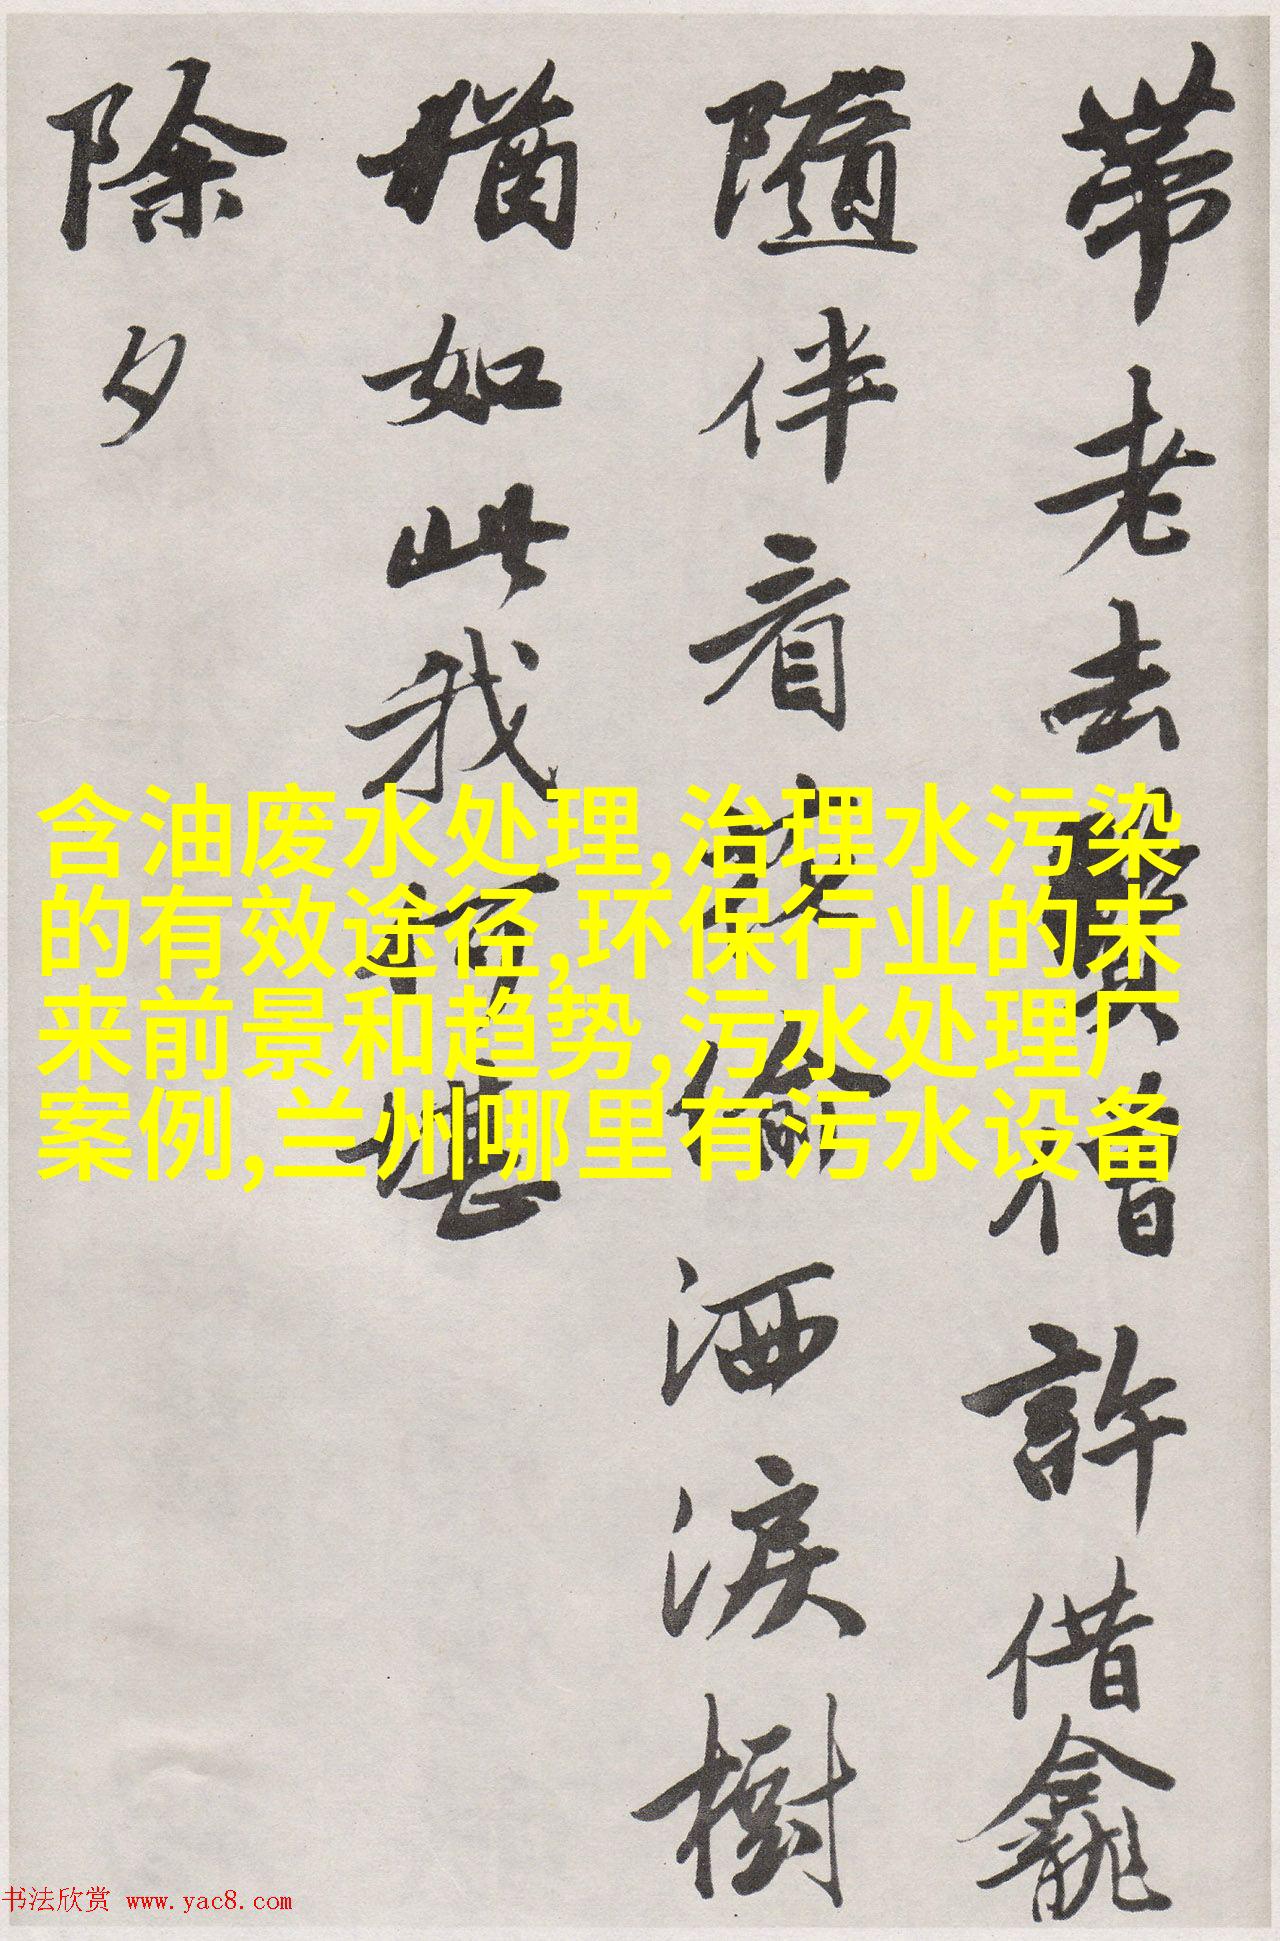 帶老去賢僧許借龕
隨伴看偷洒淚樹
猶如此我何堪
除夕
含油废水处理,治理水污染
的有效途径,环保行业的未
来前景和趋势,污水处理厂
案例,兰州哪里有污水设备
书法欣赏 www.yac8.com